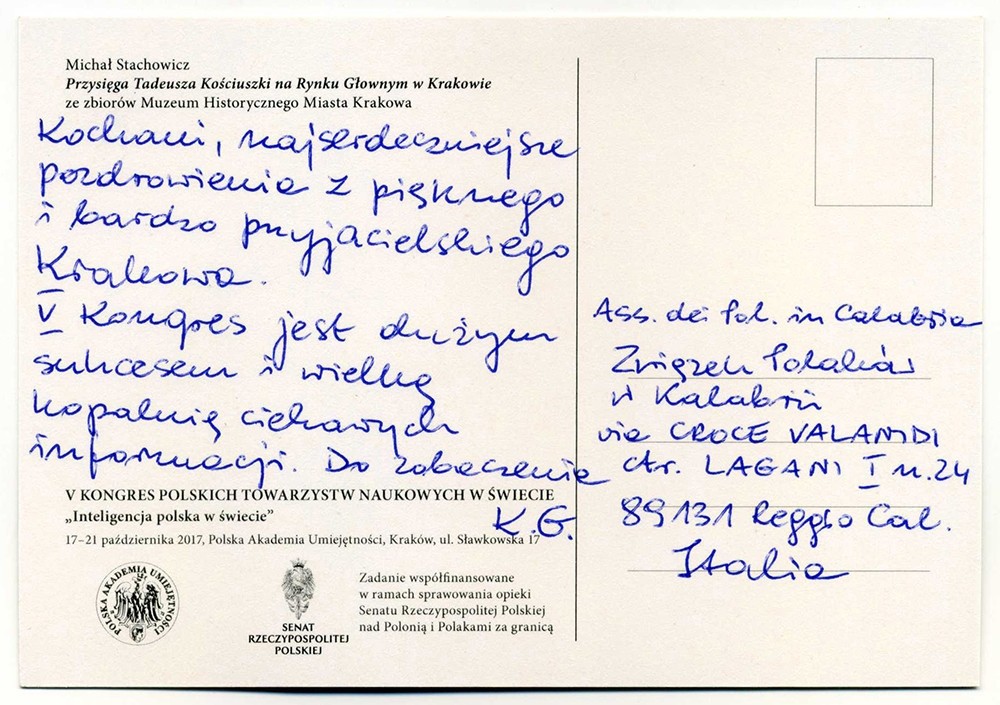 Michał Stachowicz
Przysięga Tadeusza Kościuszki na Rynku Głownym w Krakowie
ze zbiorów Muzeum Historycznego Miasta Krakowa
Kochani, najserdeczniejsze
pozdrowienia z pięknego
i bardzo przyjacielskiego
Krakowa.
V Kongres jest dużym
sukcesem i wielką
kopalnią ciekawych
informacji. Do zobaczenia
K.G.
V KONGRES POLSKICH TOWARZYSTW NAUKOWYCH W ŚWIECIE
„Inteligencja polska w świecie”
17–21 października 2017, Polska Akademia Umiejętności, Kraków, ul. Sławkowska 17
POLSKA AKADEMIA UMIEJĘTNOŚCI
SENAT
RZECZYPOSPOLITEJ
POLSKIEJ
Zadanie współfinansowane
w ramach sprawowania opieki
Senatu Rzeczypospolitej Polskiej
nad Polonią i Polakami za granicą
Ass. dei Pol. in Calabria
Związek Polaków
w Kalabrii
via CROCE VALANIDI
ctr. LAGANI I n. 24
89131 Reggio Cal.
Italia